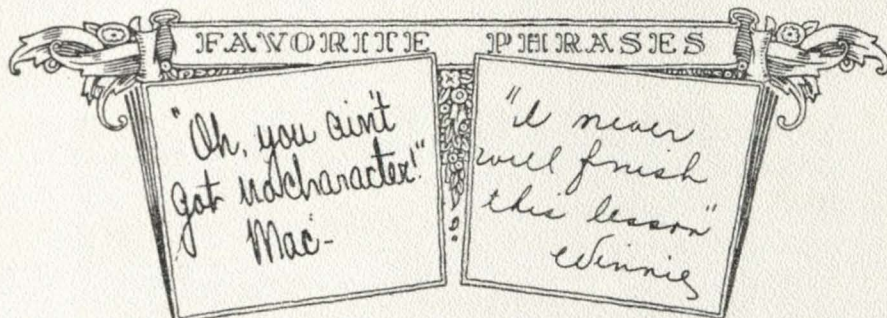 FAVORITE PHRASES
"Oh, you ain't
got no character!"
Mac-
"I never
will finish
this lesson"
Winnie